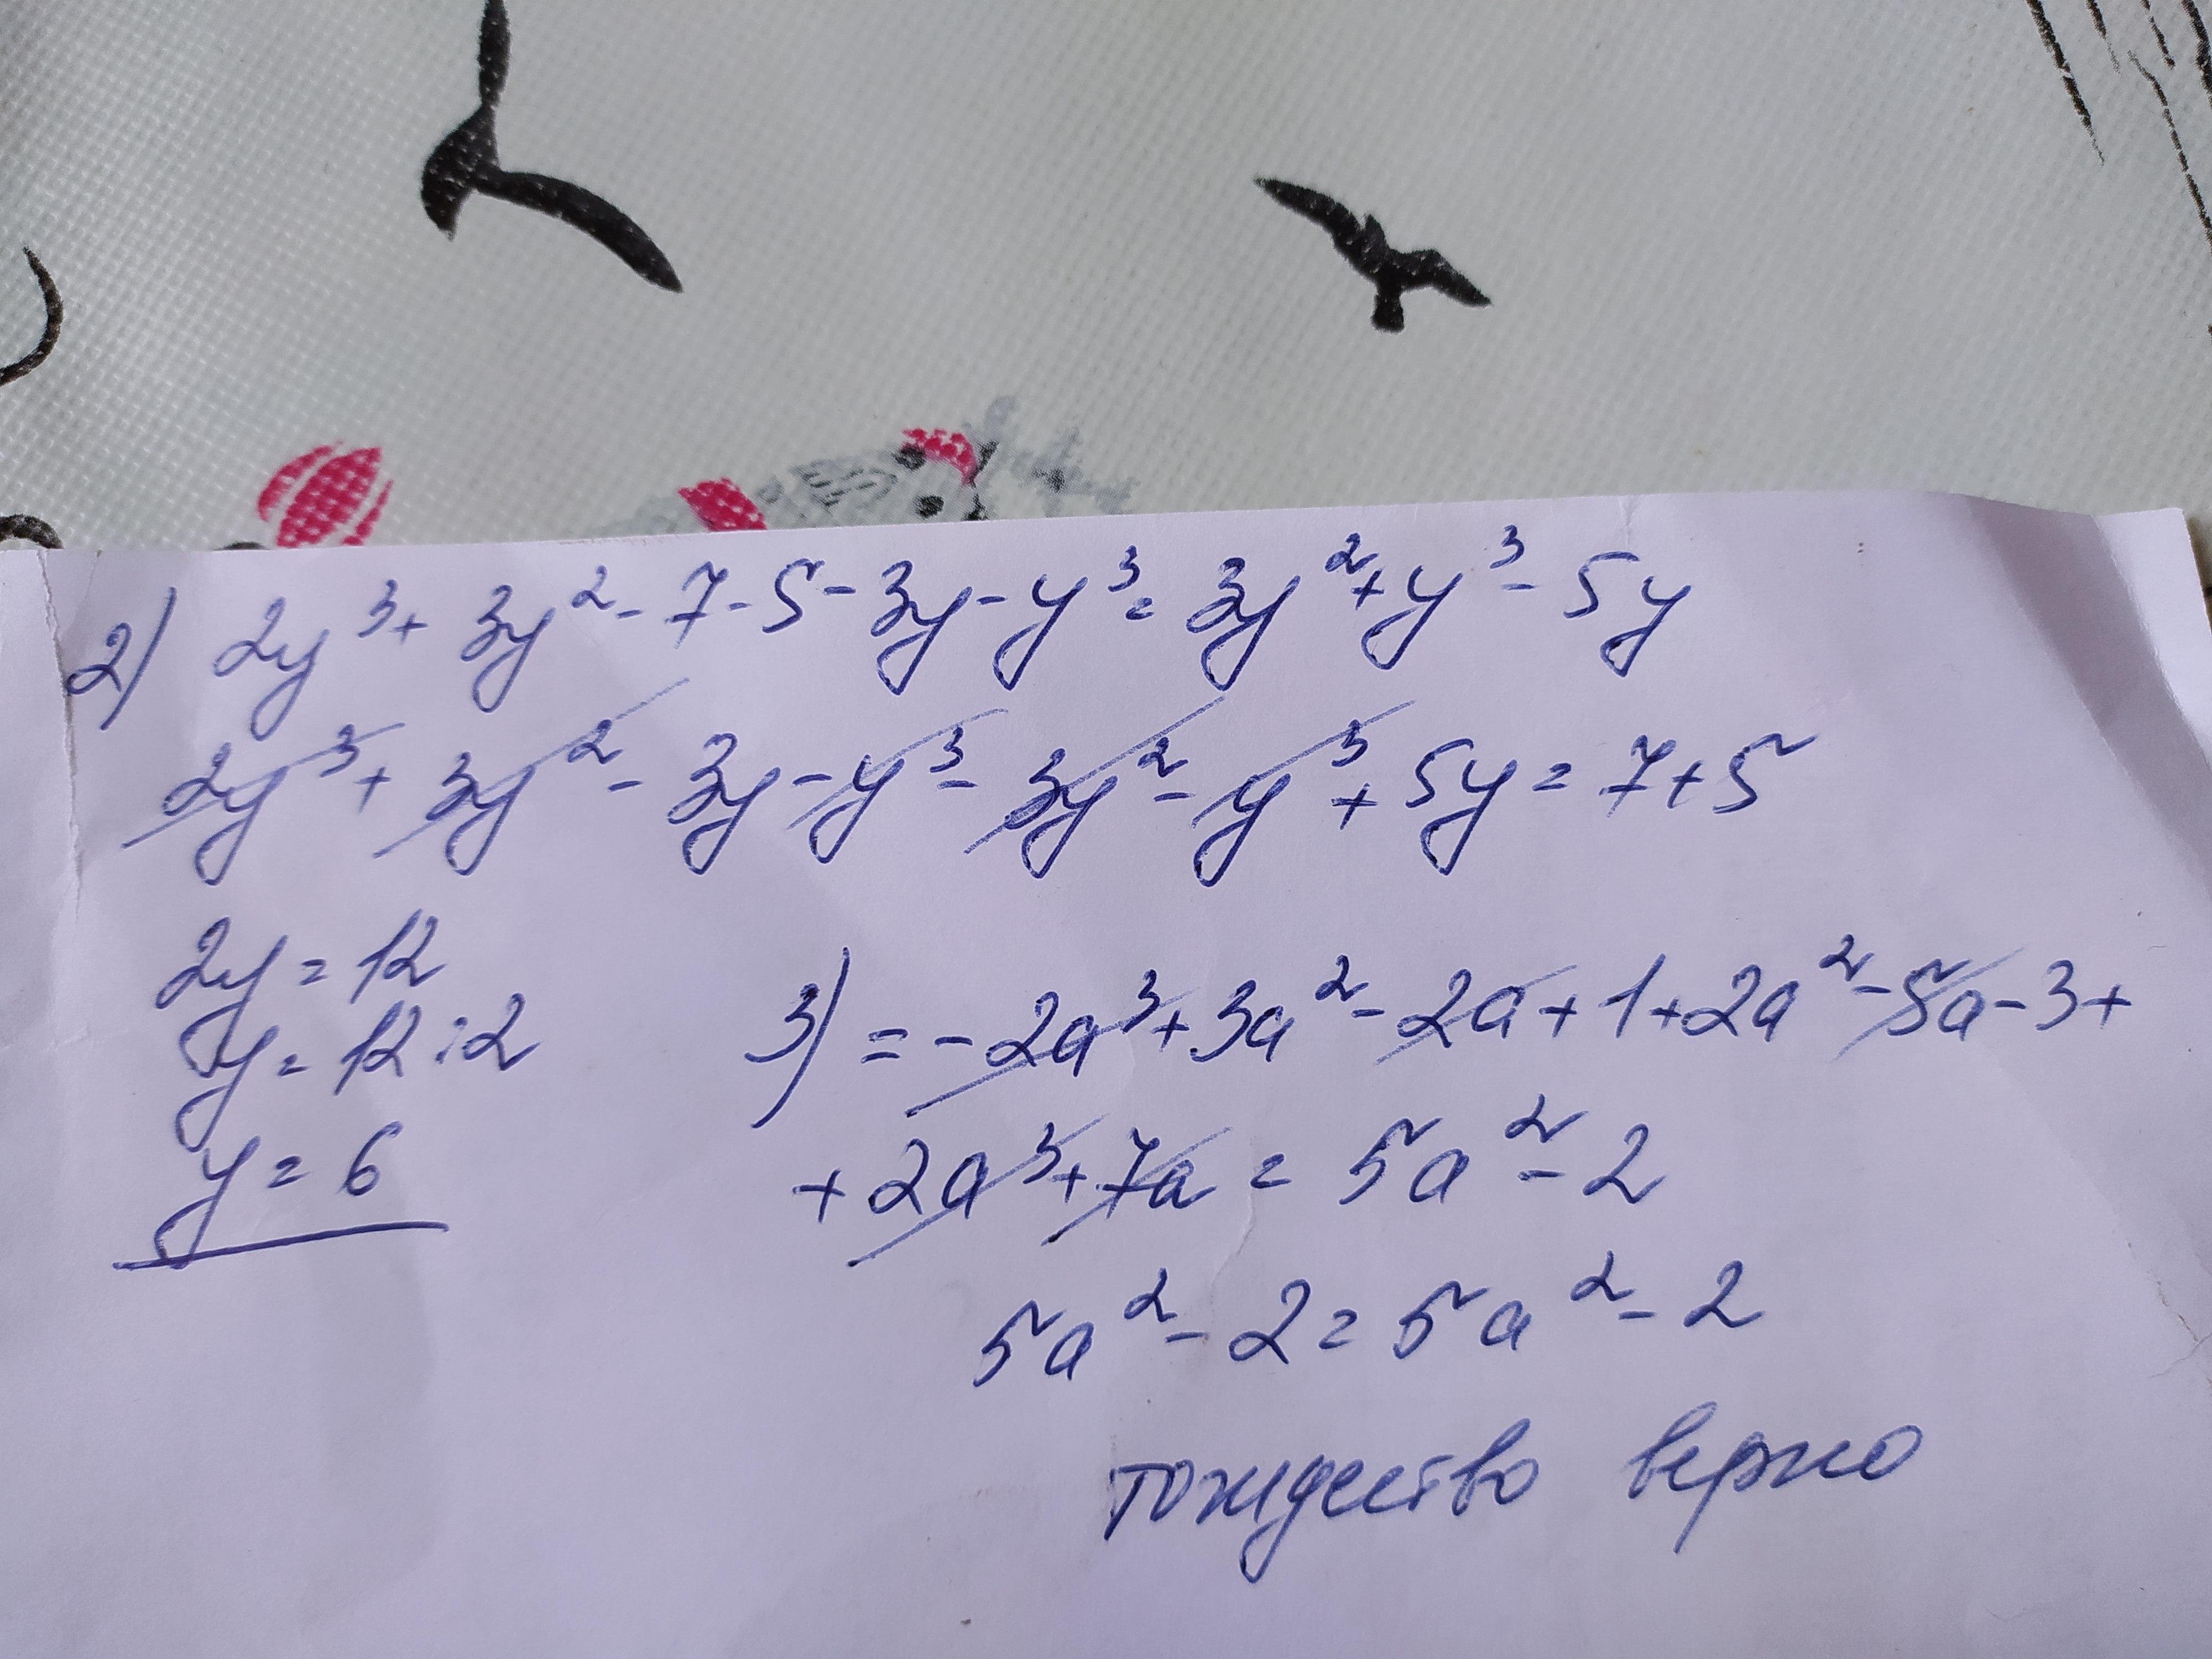 2) 2y³ + 3y² - 7 - 5 - 3y - y³ = 3y² + y³ - 5y
2y³ + 3y² - 3y - y³ - 3y² - y³ + 5y = 7 + 5
2y = 12
y = 12 : 2
y = 6
3) = - 2a³ + 3a² - 2a + 1 + 2a² - 5a - 3 +
+ 2a³ + 7a = 5a² - 2
5a² - 2 = 5a² - 2
тождество верно